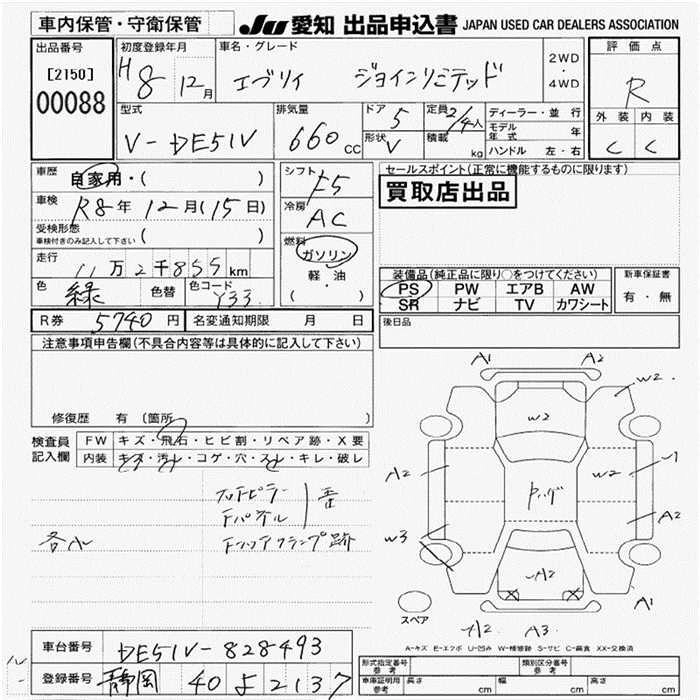 車内保管・守衛保管
JU 愛知 出品申込書 JAPAN USED CAR DEALERS ASSOCIATION
出品番号
[2150]
00088
初度登録年月
H8 12月
車名・グレード
エブリイ ジョインリミテッド
2WD
・
4WD
評価点
R
外装 内装
C C
型式
V-DE51V
排気量
660cc
ドア
5
形状
V
定員
2/4人
積載 kg
ディーラー・並行
モデル年式 年
ハンドル 左・右
車歴
自家用・( )
車検
R8年12月(15日)
受検形態
車検付きのみ記入して下さい ( )
走行
11万2千855km
色
緑
色替
色コード
Y33
シフト
F5
冷房
AC
燃料
ガソリン
軽・油
( ・ )
セールスポイント(正常に機能するものに限ります)
買取店出品
装備品(純正品に限り○をつけてください)
PS PW エアB AW
SR ナビ TV カワシート
新車保証書
有・無
後日品
R券 5740円
名変通知期限 月 日
注意事項申告欄(不具合内容等は具体的に記入して下さい)
修復歴 有 (箇所
検査員
記入欄
FW キズ・飛石・ヒビ割・リペア跡・X要
内装 キズ・汚れ・コゲ・穴・スレ・キレ・破レ
フロトピラー
Fパネル
歪
各小
Fフロアクランプ跡
A1 A2
W2
W2
A2
W2
A2
W3
A2
A1
スペア
A2 A3
A-キズ E-エクボ U-凹み W-補修跡 S-サビ C-腐食 XX-交換済
車台番号
DE51V-828493
登録番号
静岡 40 よ 2137
形式指定番号
参考
類別区分番号
参考
車庫証明用
参考
長さ cm 幅 cm 高さ cm